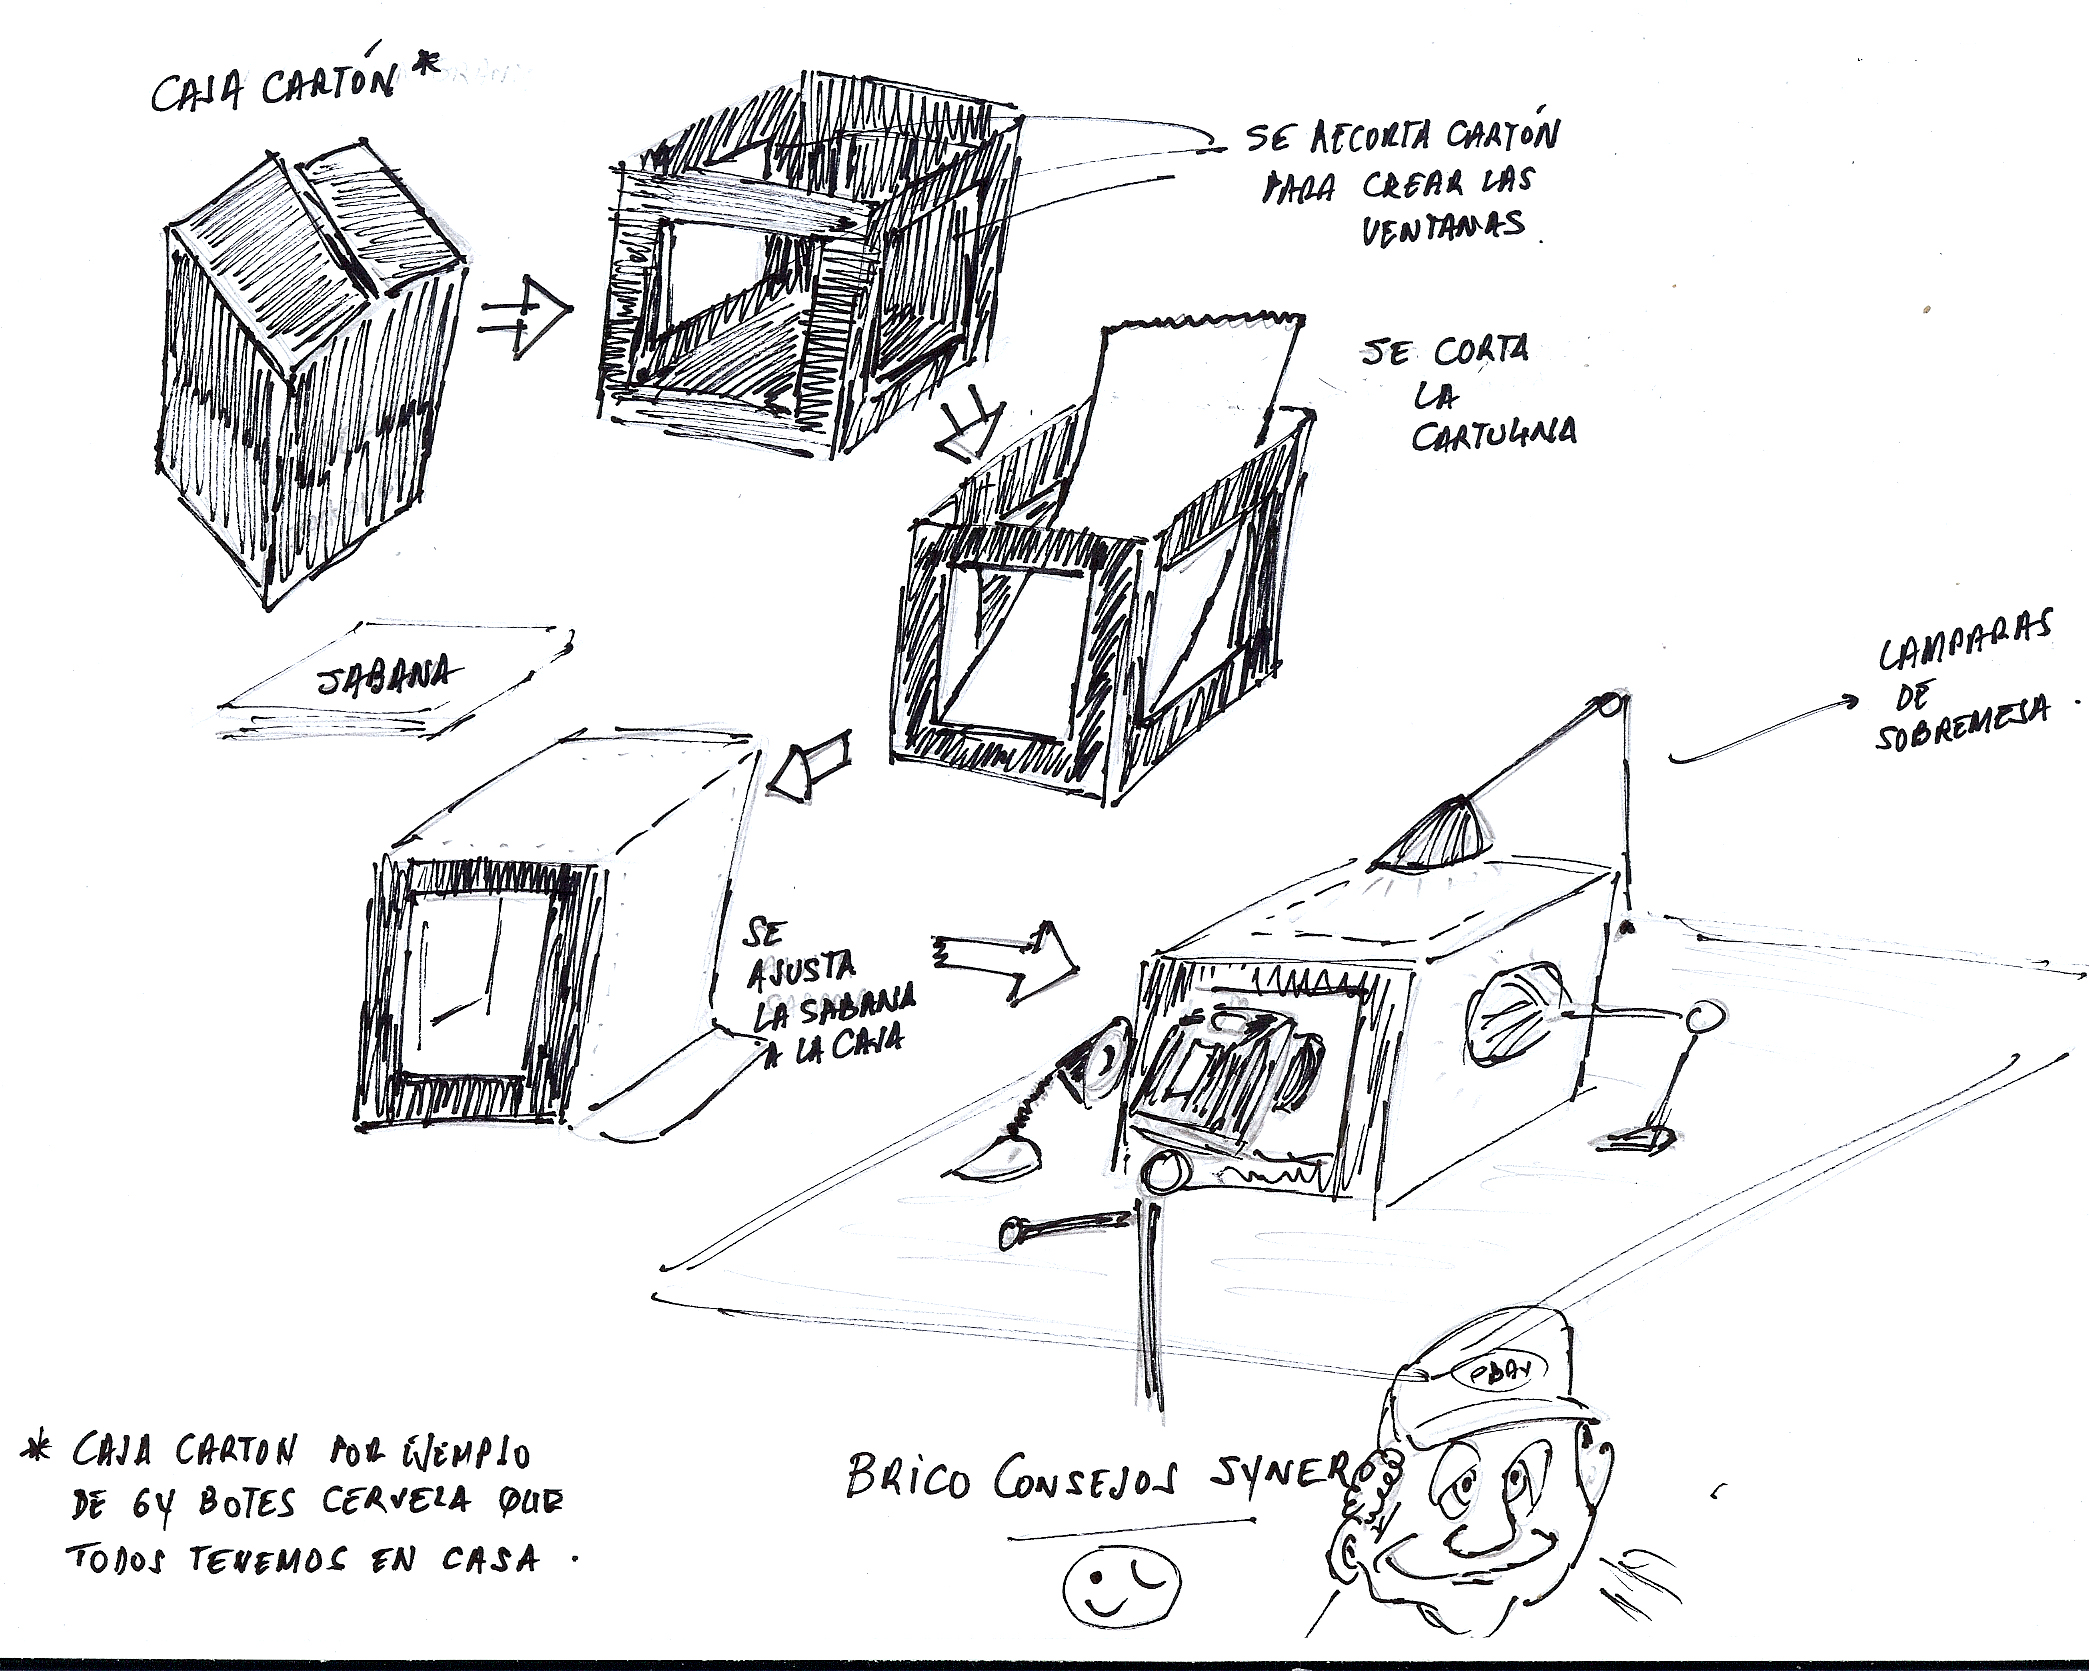 CAJA CARTÓN *
SE RECORTA CARTÓN
PARA CREAR LAS
VENTANAS.
SE CORTA
LA
CARTULINA
SABANA
LAMPARAS
DE
SOBREMESA.
SE
AJUSTA
LA SABANA
A LA CAJA
eBAY
* CAJA CARTON POR EJEMPLO
DE 64 BOTES CERVEZA QUE
TODOS TENEMOS EN CASA.
BRICO CONSEJOS SYNERO